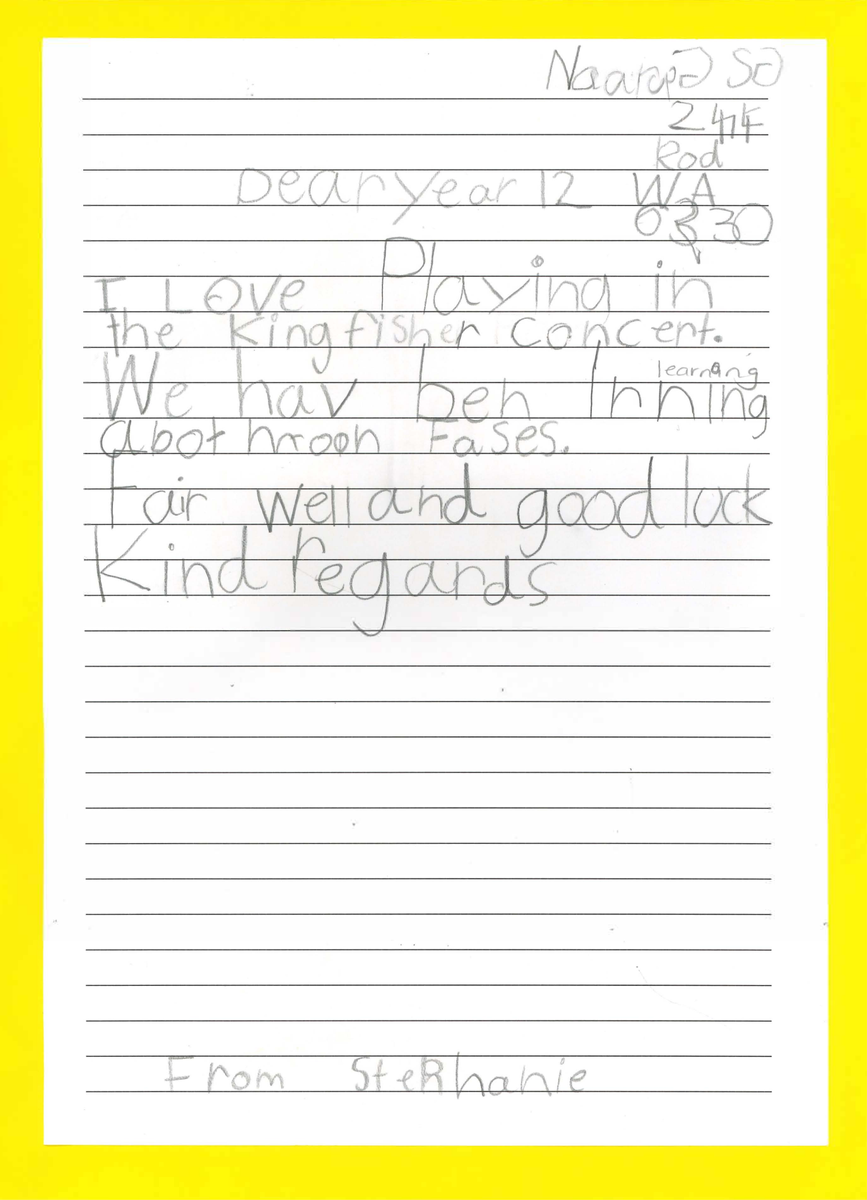 Rod
Dear Year 12 WA
I Love Playing in
the Kingfisher concert.
We hav ben lnning
learning
abot mroon Fases.
Fair well and good luck
Kind regards
From Stephanie